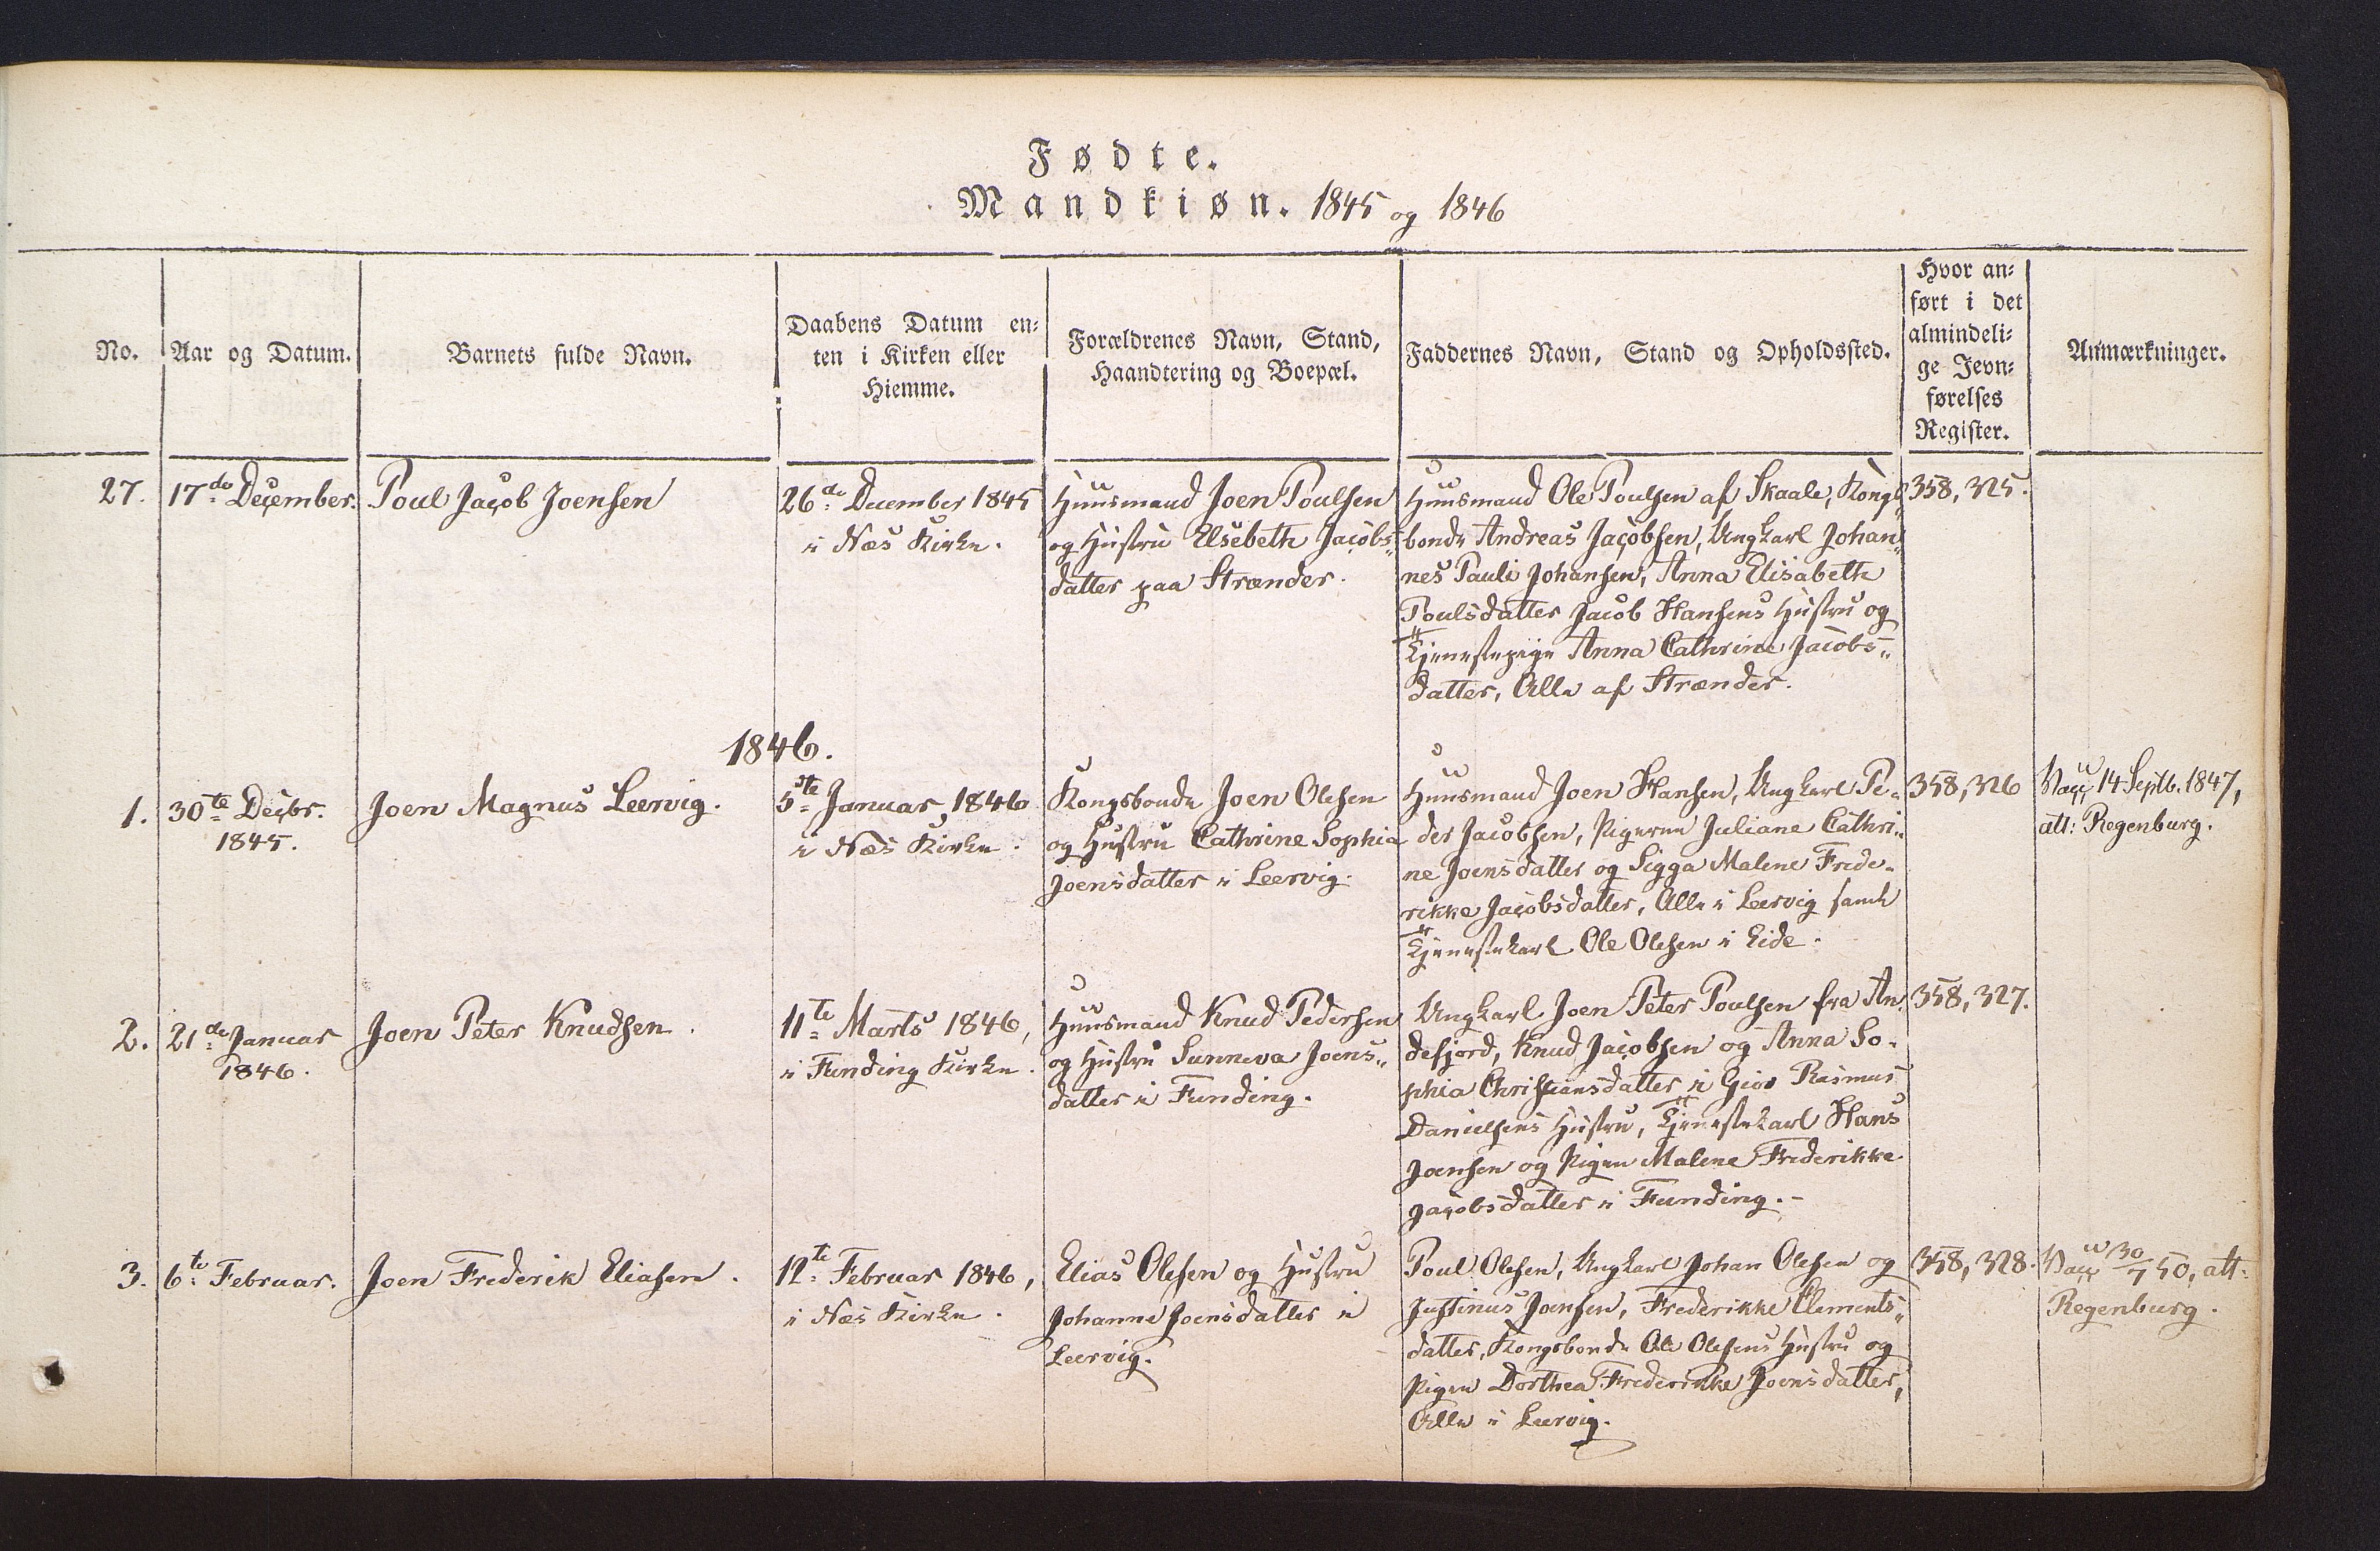 Fødte.
Mandkiøn. 1845 og 1846
No.
Aar og Datum.
Barnets fulde Navn.
Daabens Datum en-
ten i Kirken eller
Hiemme.
Forældrenes Navn, Stand,
Haandtering og Boepæl.
Faddernes Navn, Stand og Opholdssted.
Hvor an-
ført i det
almindeli-
ge Jevn-
førelses
Register.
Anmærkninger.
27.
17de December.
Poul Jacob Joensen
26de December 1845
i Næs Kirke.
Huusmand Joen Poulsen
og Hustru Elsebeth Jacobs-
datter paa Strænder.
Huusmand Ole Poulsen af Skaale, Kongs-
bonde Andreas Jacobsen, Ungkarl Johan-
nes Pauli Johansen, Anna Elisabeth
Poulsdatter Jacob Hansens Hustru og
Tjenestepige Anna Cathrine Jacobs-
datter, Alle af Strænder.
358, 325.
1846.
1.
30te Decbr.
1845.
Joen Magnus Leervig.
5te Januar, 1846
i Næs Kirke.
Kongsbonde Joen Olesen
og Hustru Cathrine Sophia
Joensdatter i Leervig.
Huusmand Joen Hansen, Ungkarl Pe-
der Jacobsen, Pigerne Juliane Cathri-
ne Joensdatter og Sigga Malene Frede-
rikke Jacobsdatter, Alle i Leervig samt
Tjenestekarl Ole Olesen i Eide.
358, 326
Vacc 14 Septb. 1847,
att: Regenburg.
2.
21de Januar
1846.
Joen Peter Knudsen.
11te Marts 1846,
i Funding Kirke.
Huusmand Knud Pedersen
og Hustru Sunneva Joens-
datter i Funding.
Ungkarl Joen Peter Poulsen fra An-
defjord, Knud Jacobsen og Anna So-
phia Christiansdatter i Giov Rasmus
Danielsens Hustru, Tjenestekarl Hans
Joensen og Pigen Malene Frederikke
Jacobsdatter i Funding.-
358, 327.
3.
6te Februar.
Joen Frederik Eliasen.
12te Februar 1846,
i Næs Kirke.
Elias Olesen og Hustru
Johanne Joensdatter i
Leervig.
Poul Olesen, Ungkarl Johan Olesen og
Justinus Joensen, Frederikke Clements-
datter, Kongsbonde Ole Olesens Hustru og
Pigen Dorthea Frederikke Joensdatter,
Alle i Leervig.
358, 328.
Vacc 30/7 50, att:
Regenburg.